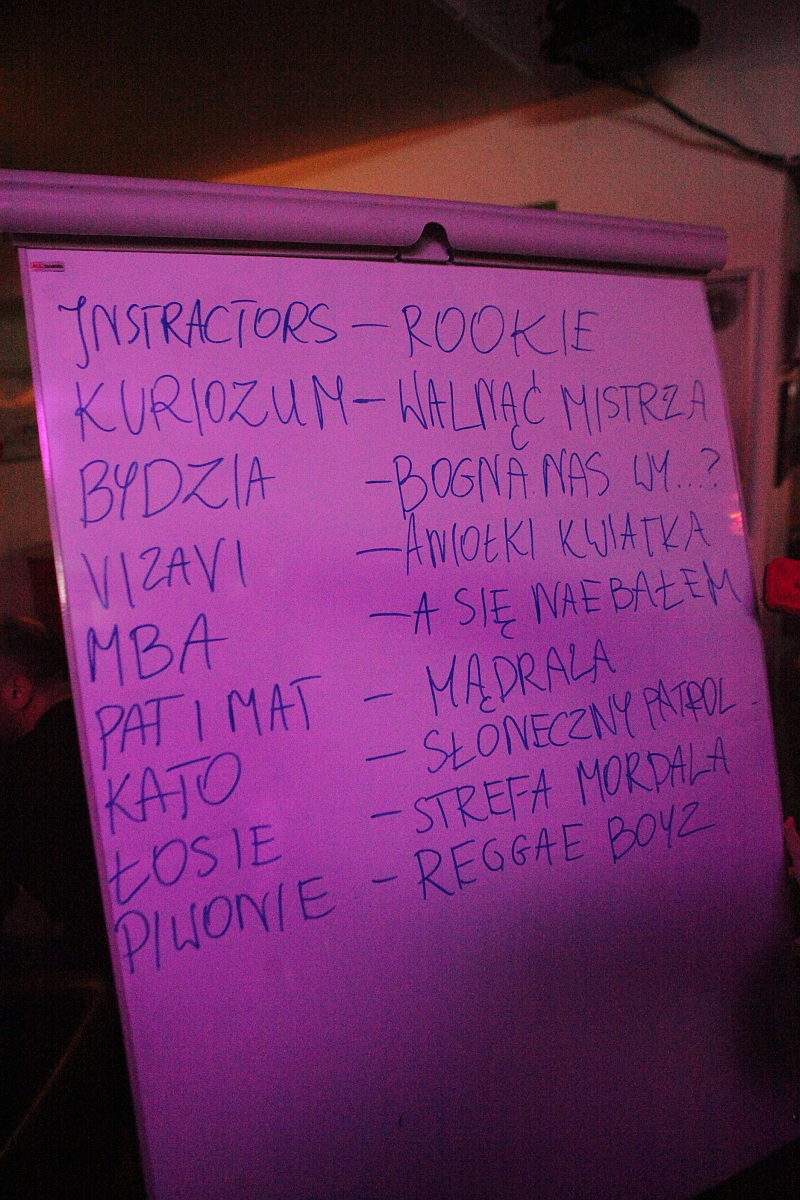 INSTRACTORS — ROOKIE
KURIOZUM — WALNĄĆ MISTRZA
BYDZIA — BOGNA NAS WY...?
VIZAVI — ANIOŁKI KWIATKA
MBA — A SIĘ NAEBAŁEM
PAT I MAT — MĄDRALA
KATO — SŁONECZNY PATROL
ŁOSIE — STREFA MORDALA
PIWONIE — REGGAE BOYZ